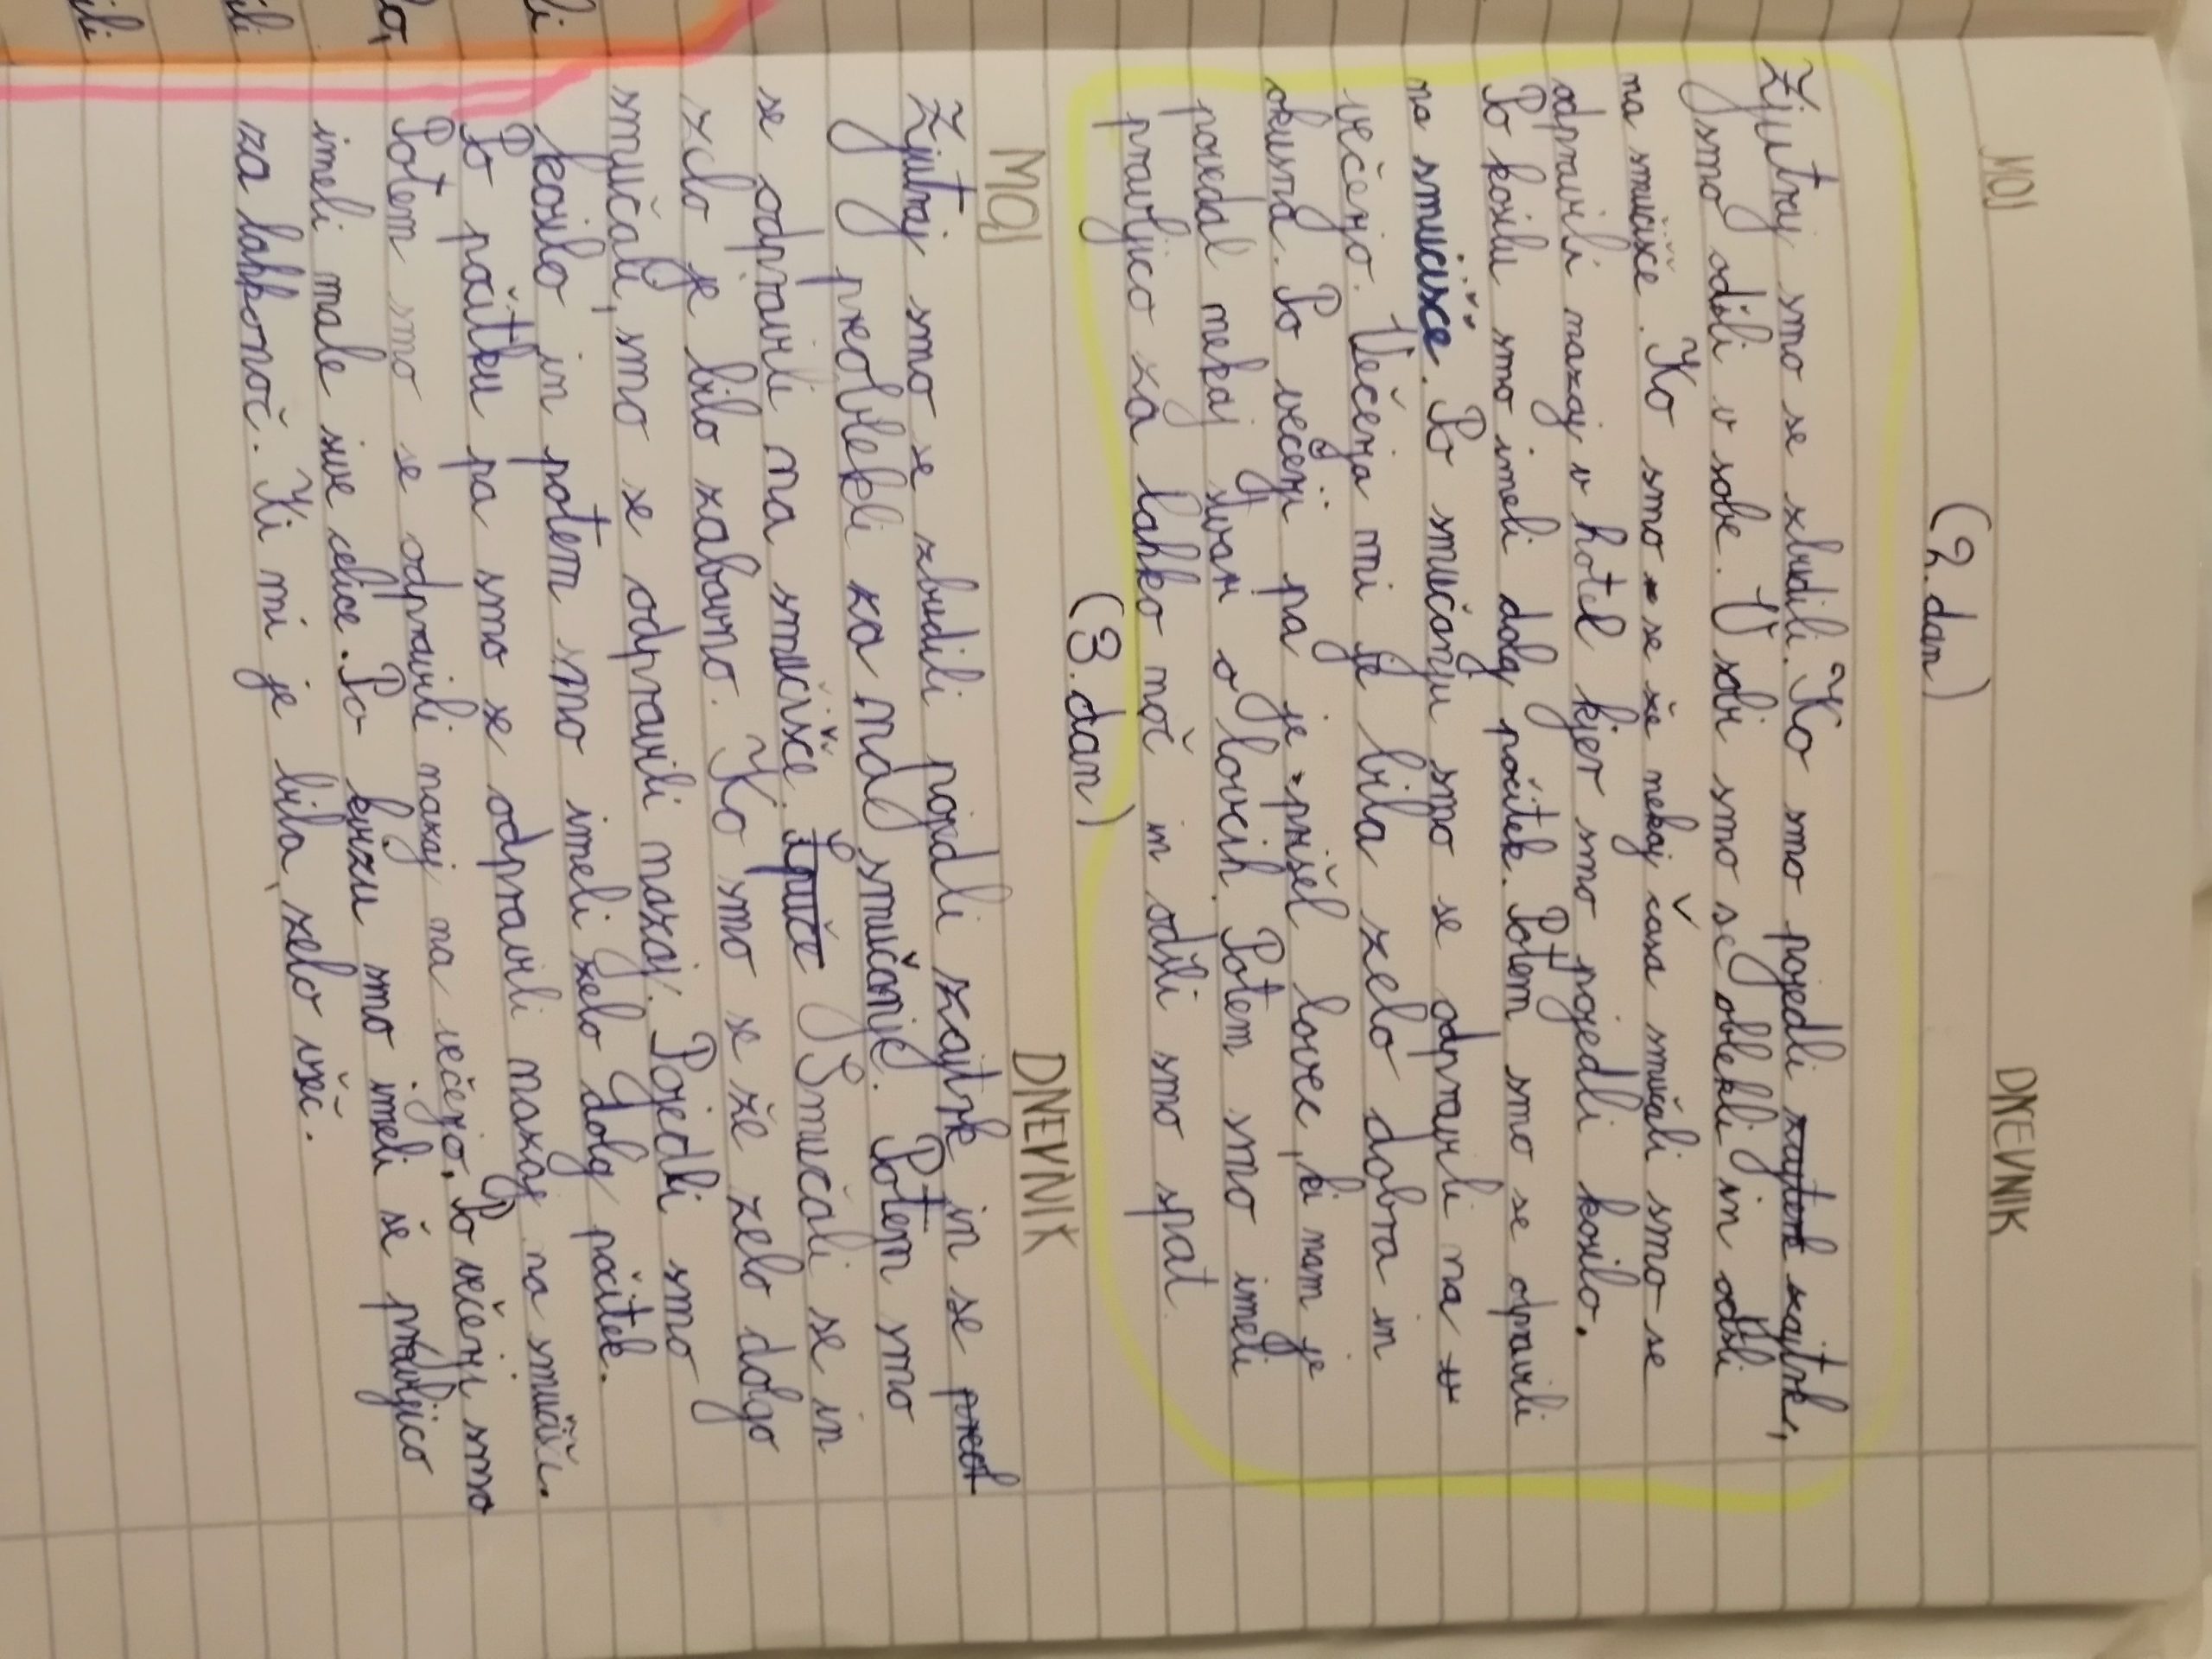 MOJ DNEVNIK
(2. dan)
Zjutraj smo se zbudili. Ko smo pojedli zajtrk,
smo odšli v sobe. V sobi smo se oblekli in odšli
na smučišče. Ko smo se že nekaj časa smučali smo se
odpravili nazaj v hotel kjer smo pojedli kosilo.
Po kosilu smo imeli dolg počitek. Potem smo se opravili
na smučišče. Po smučanju smo se odpravili na
večerjo. Večerja mi je bila zelo dobra in
okusna. Po večerji pa je prišel lovec, ki nam je
povedal nekaj stvari o lovcih. Potem smo imeli
pravljico za lahko noč in odšli smo spat.
(3. dan)
MOJ DNEVNIK
Zjutraj smo se zbudili pojedli zajtrk in se
preoblekli za na smučanje. Potem smo
se odpravili na smučišče. Smučali se in
zelo je bilo zabavno. Ko smo se že zelo dolgo
smučali, smo se odpravili nazaj. Pojedli smo
kosilo in potem smo imeli zelo dolg počitek.
Po počitku pa smo se odpravili nazaj na smučišče.
Potem smo se odpravili nazaj na večerjo. Po večerji smo
imeli male sive celice. Po kvizu smo imeli še pravljico
za lahkonoč. Ki mi je bila zelo všeč.
li
lo,
ili
ili